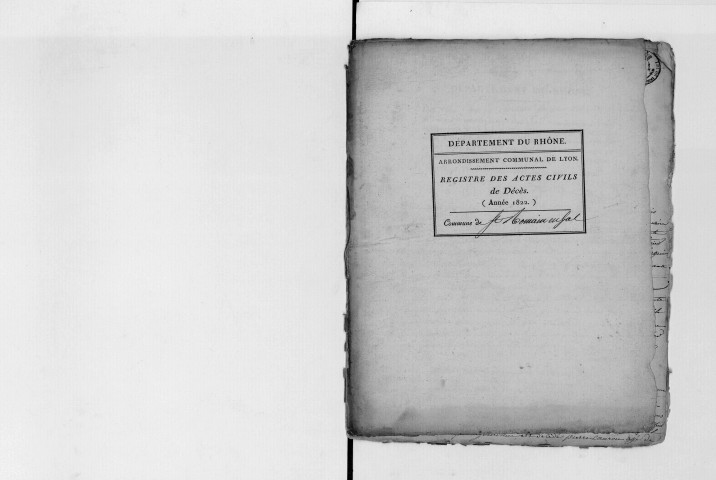 DEPARTEMENT DU RHÔNE.
ARRONDISSEMENT COMMUNAL DE LYON.
REGISTRE DES ACTES CIVILS
de Décès.
( Année 1822. )
Commune de St Romain en Gal